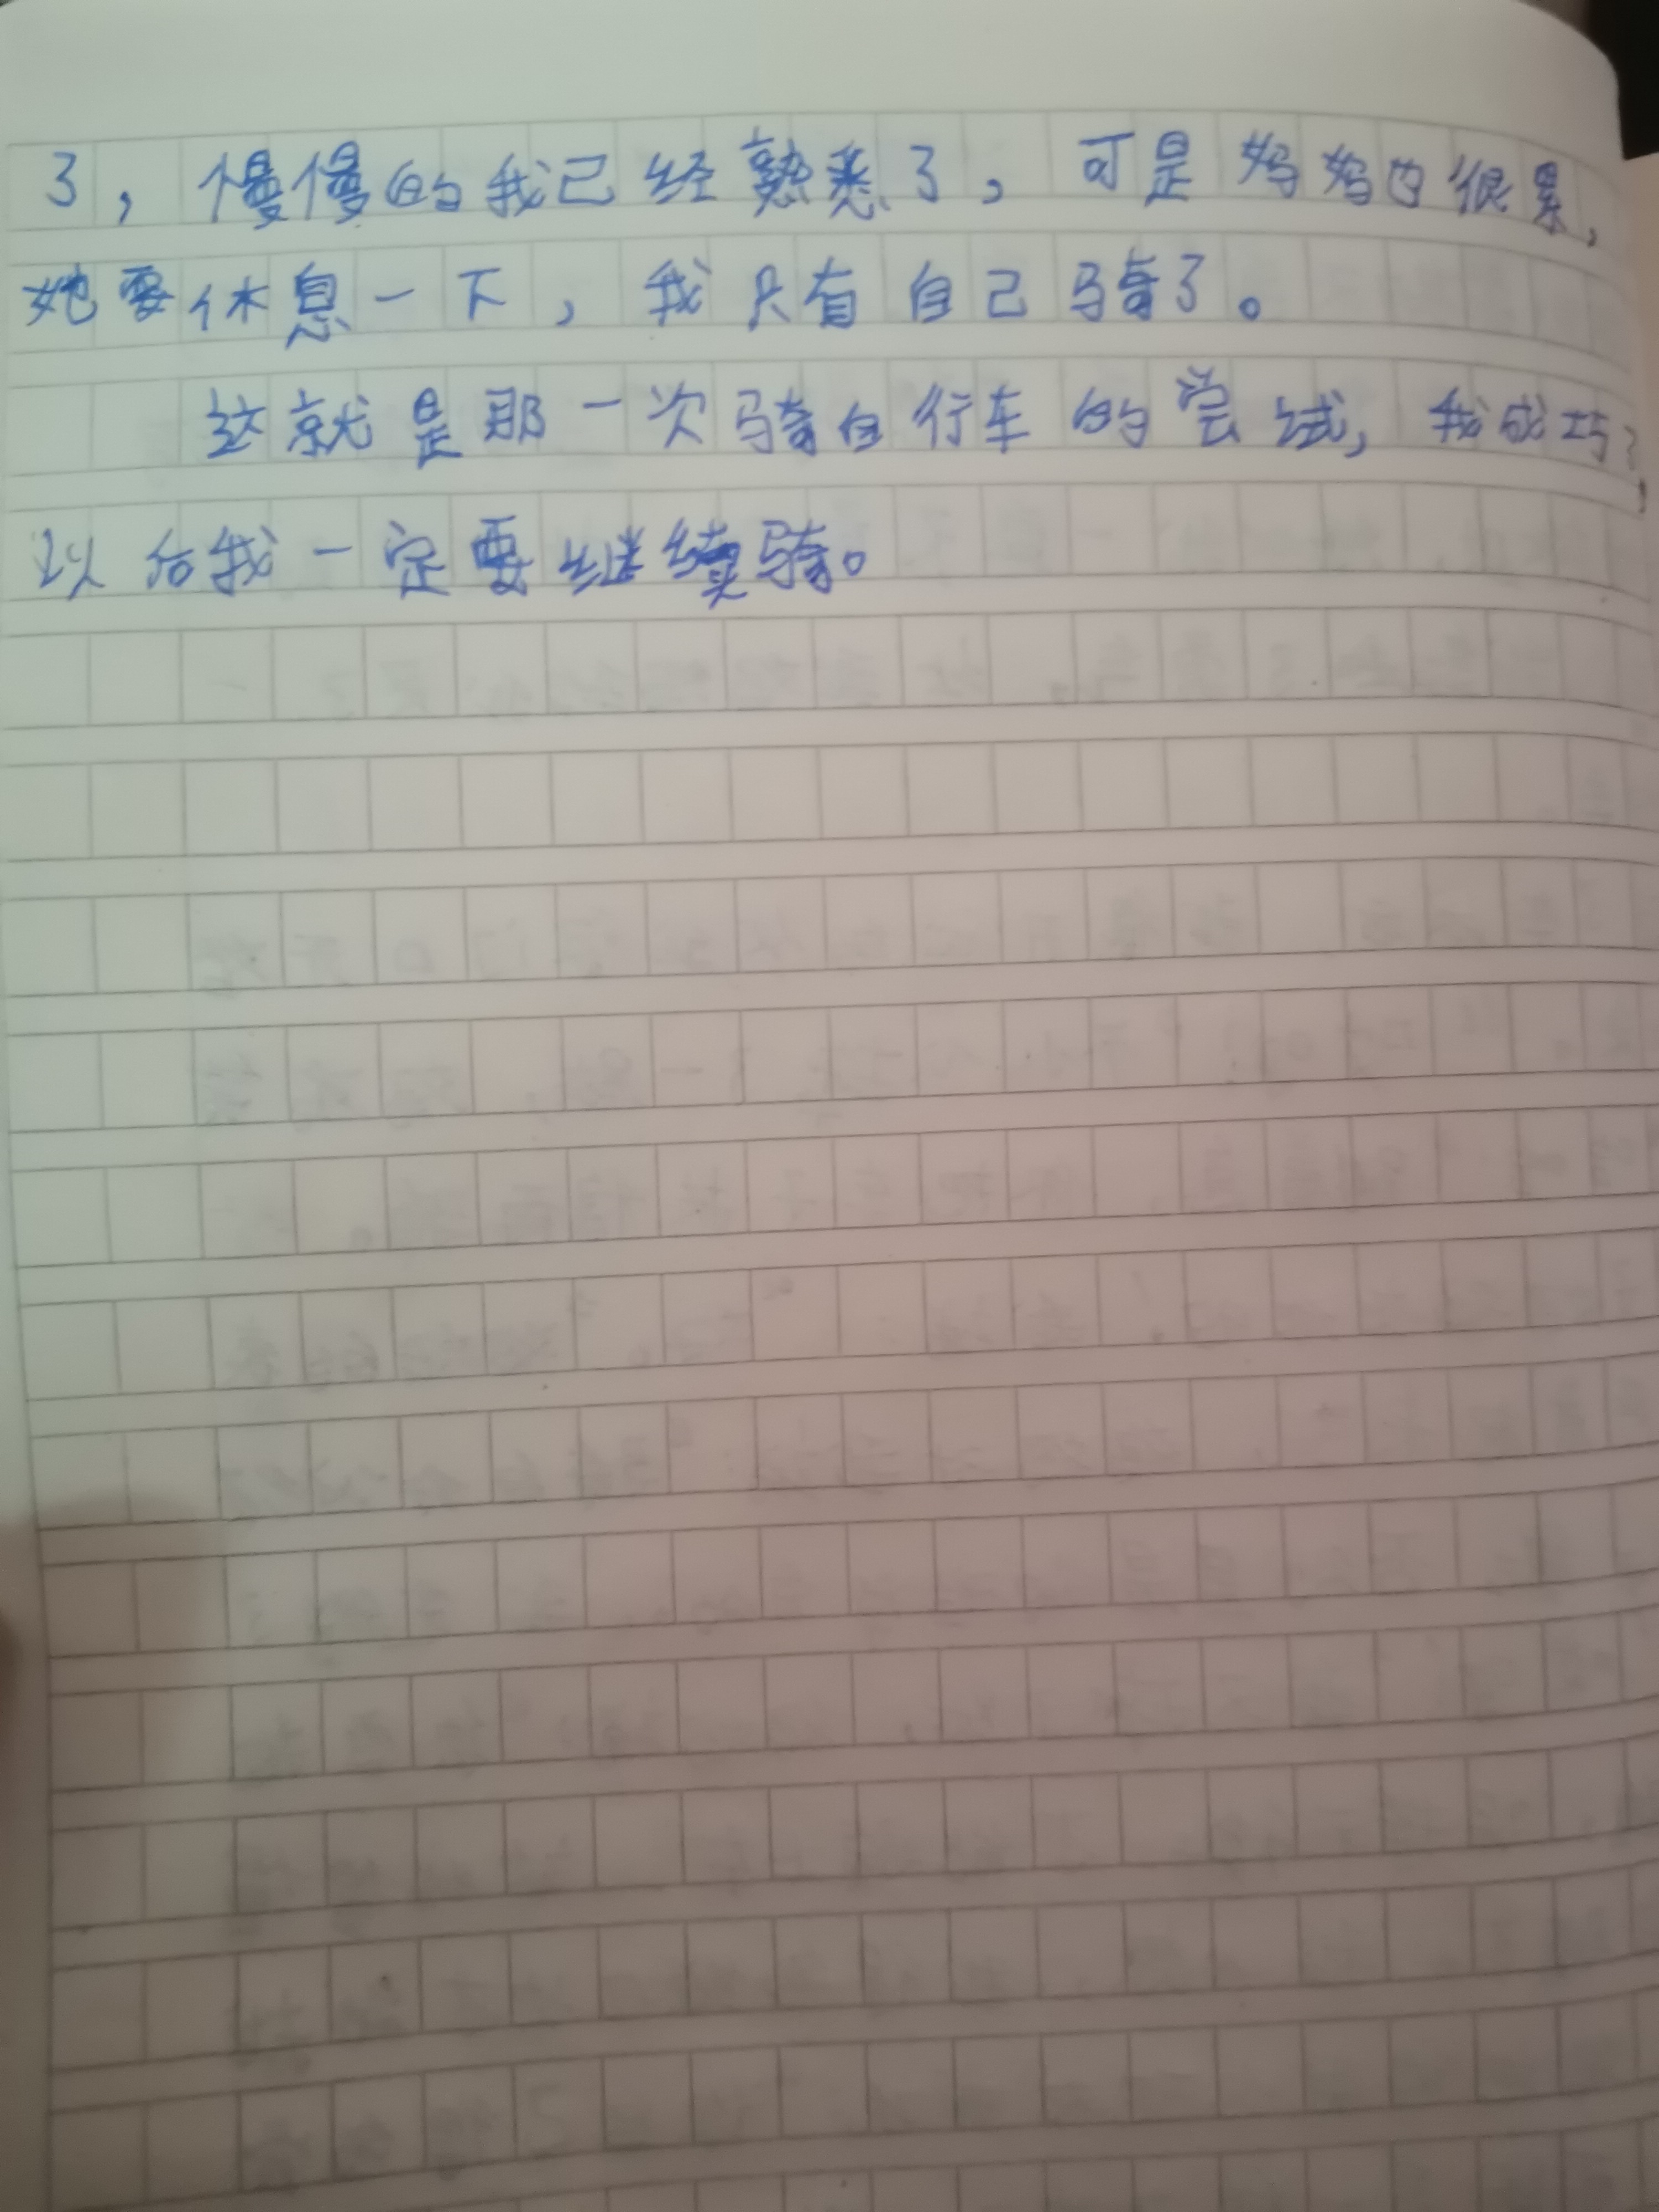 了，慢慢的我已经熟悉了，可是妈妈也很累，
她要休息一下，我只有自己骑了。
这就是那一次骑自行车的尝试，我成功了，
以后我一定要继续骑。